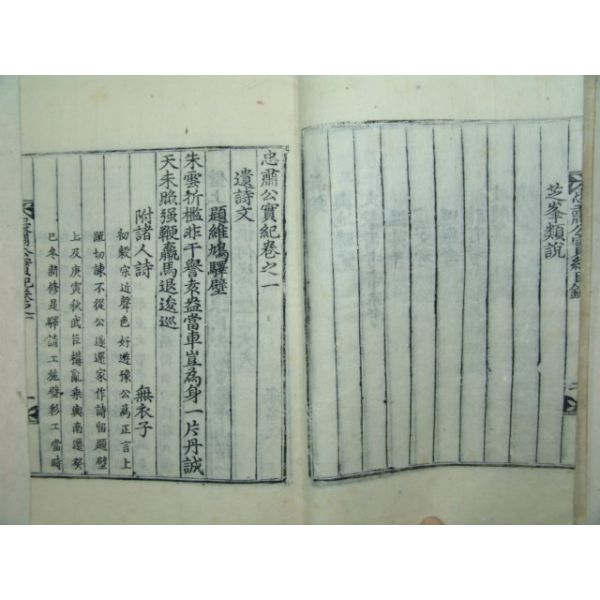 忠肅公實紀目錄
芝峯類說
忠肅公實紀卷之一
遺詩文
題維鳩驛壁
朱雲折檻非干譽袁盎當車豈為身一片丹誠
天未照强鞭羸馬退逡巡
附諸人詩 無衣子
初毅宗近聲色好遊豫公為正言上
疏切諫不從公遂還家作詩留題壁
上及庚寅秋武臣構亂乘輿南遷癸
巳冬新修是驛請工施壁彩工當時
忠肅公實紀卷之一